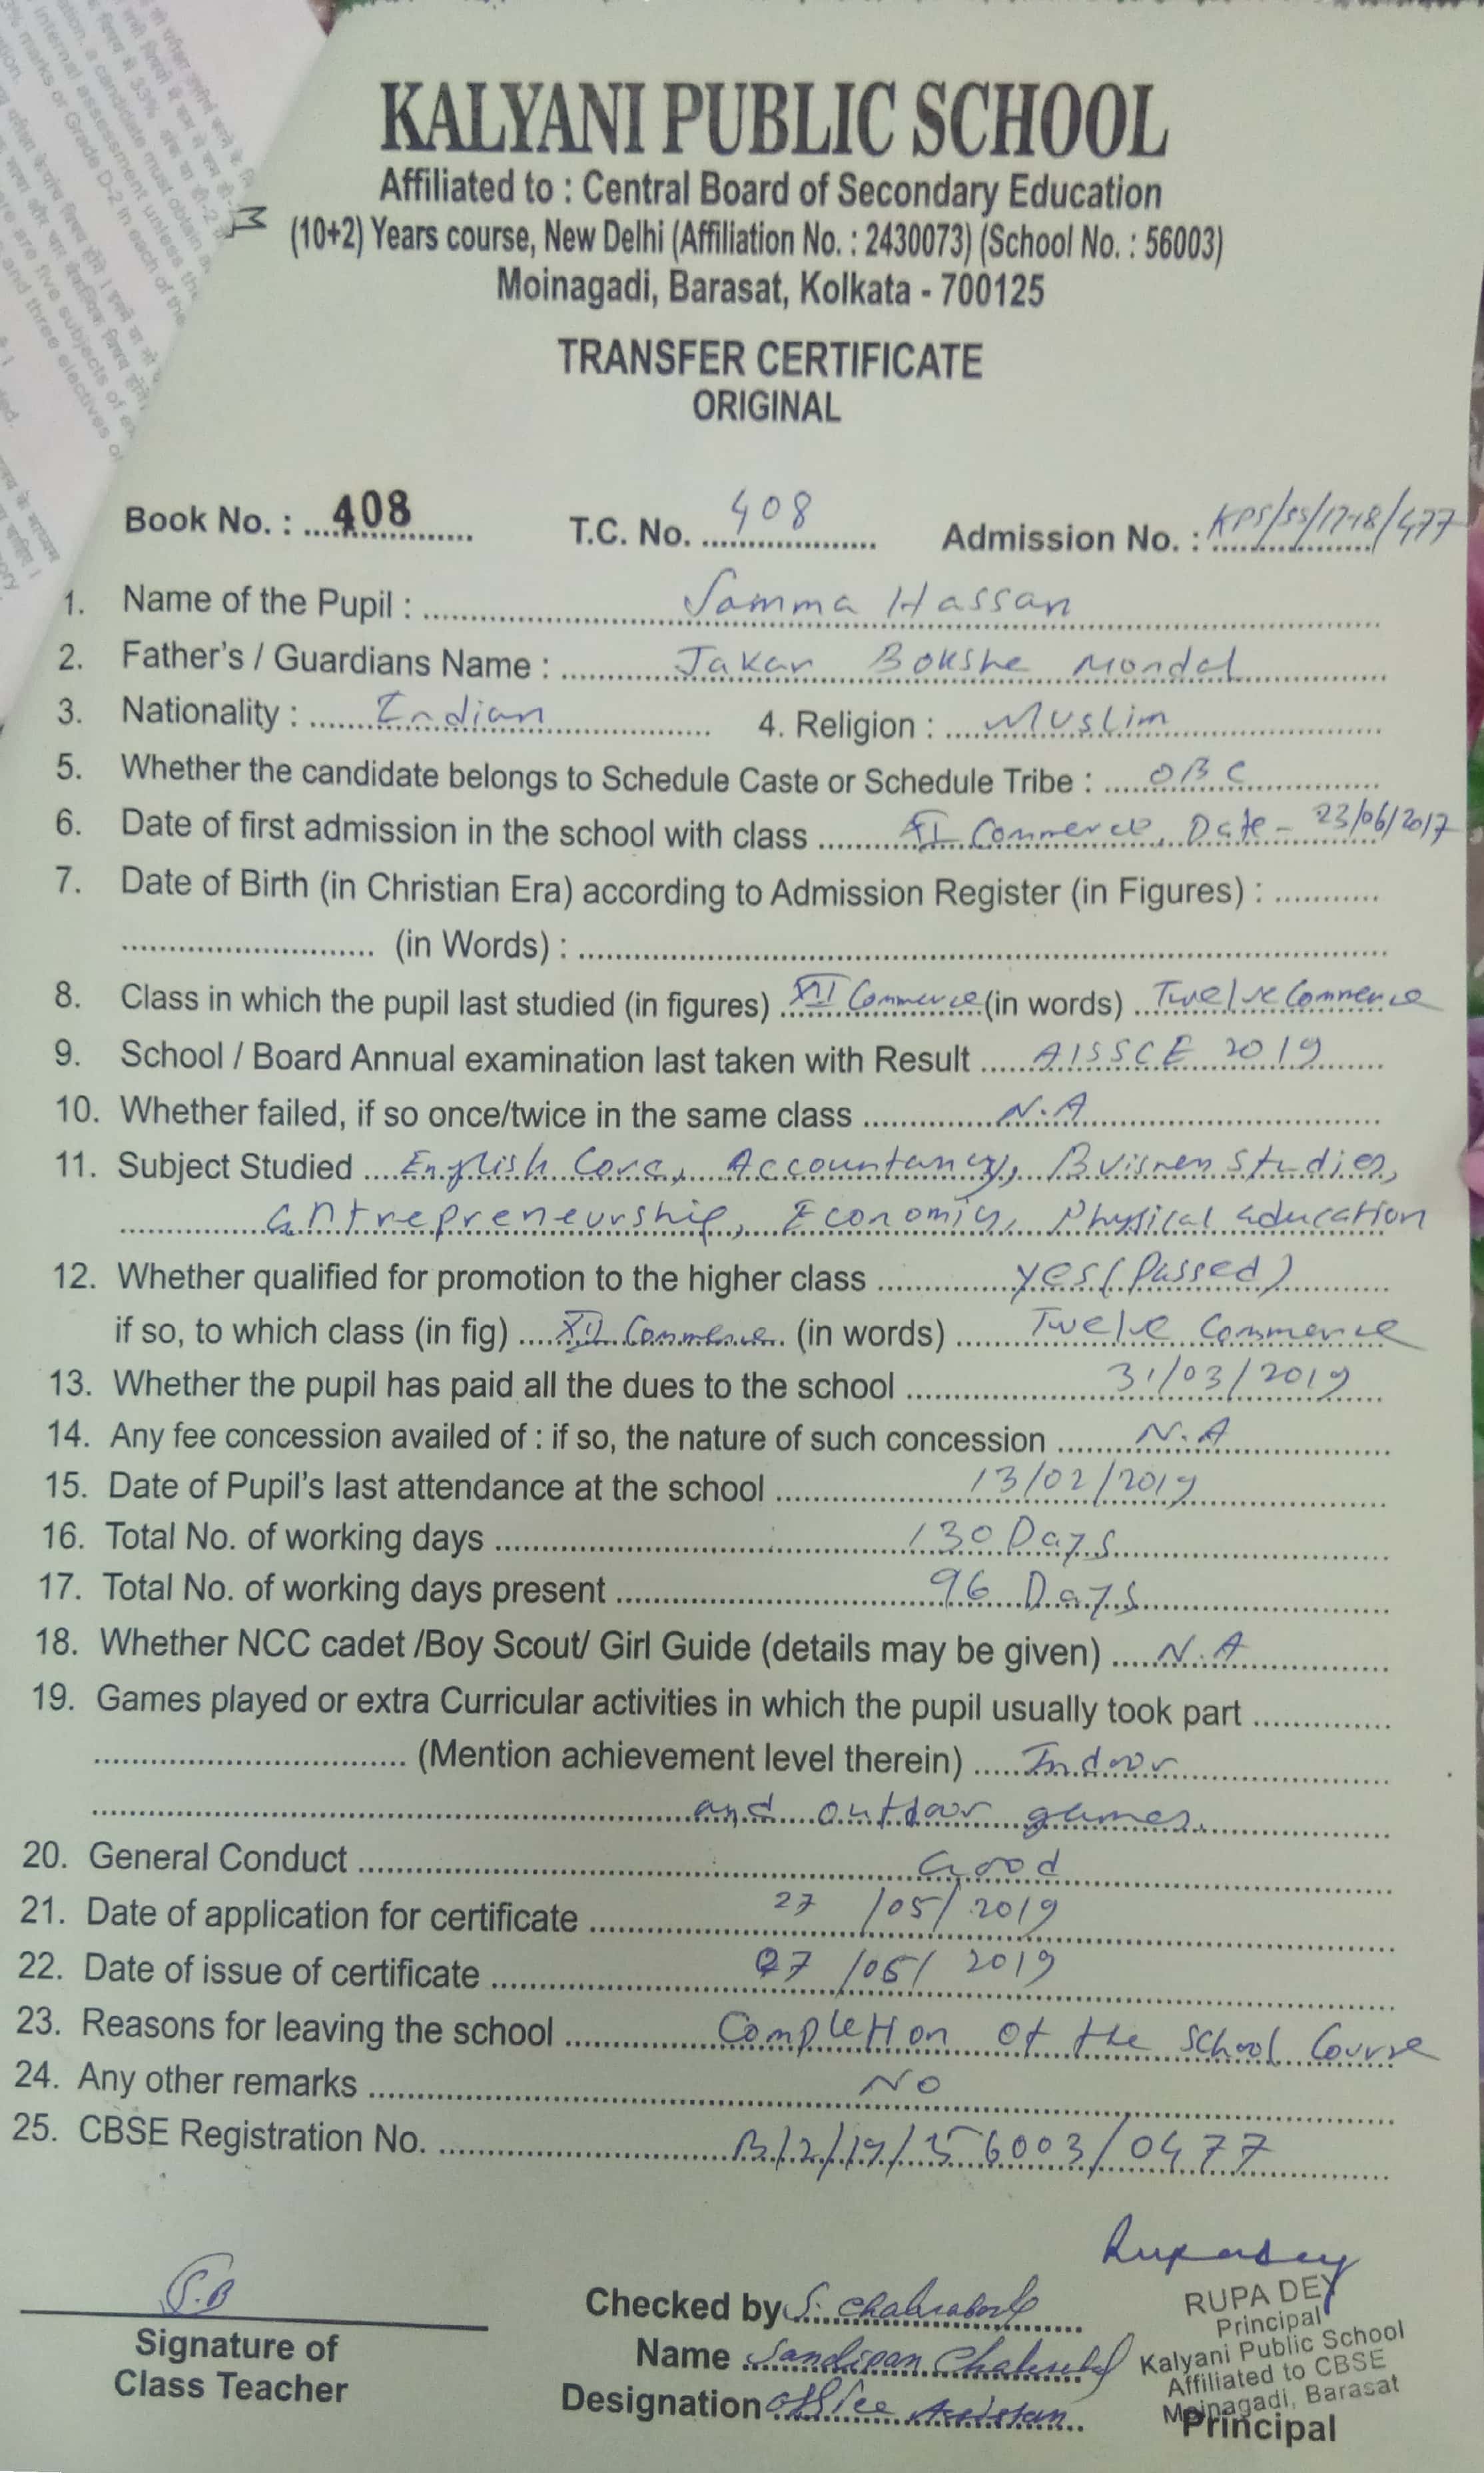 KALYANI PUBLIC SCHOOL
Affiliated to : Central Board of Secondary Education
(10+2) Years course, New Delhi (Affiliation No. : 2430073) (School No. : 56003)
Moinagadi, Barasat, Kolkata - 700125
TRANSFER CERTIFICATE
ORIGINAL
Book No. : 408 T.C. No. 408 Admission No. : KPS/SS/17-18/477
1. Name of the Pupil : Somma Hassan
2. Father's / Guardians Name : Jakar Bokshe Mondal
3. Nationality : Indian 4. Religion : Muslim
5. Whether the candidate belongs to Schedule Caste or Schedule Tribe : OBC
6. Date of first admission in the school with class XI Commerce, Date - 23/06/2017
7. Date of Birth (in Christian Era) according to Admission Register (in Figures) :
(in Words) :
8. Class in which the pupil last studied (in figures) XII Commerce (in words) Twelve Commerce
9. School / Board Annual examination last taken with Result AISSCE 2019
10. Whether failed, if so once/twice in the same class N.A
11. Subject Studied English Core, Accountancy, Business Studies,
Entrepreneurship, Economics, Physical Education
12. Whether qualified for promotion to the higher class Yes (Passed)
if so, to which class (in fig) XII Commerce (in words) Twelve Commerce
13. Whether the pupil has paid all the dues to the school 31/03/2019
14. Any fee concession availed of : if so, the nature of such concession N.A
15. Date of Pupil's last attendance at the school 13/02/2019
16. Total No. of working days 130 Days
17. Total No. of working days present 96 Days
18. Whether NCC cadet /Boy Scout/ Girl Guide (details may be given) N.A
19. Games played or extra Curricular activities in which the pupil usually took part
(Mention achievement level therein) Indoor
and outdoor games.
20. General Conduct Good
21. Date of application for certificate 27/05/2019
22. Date of issue of certificate 27/05/2019
23. Reasons for leaving the school Completion of the school Course
24. Any other remarks NO
25. CBSE Registration No. B/2/19/56003/0477
S.B
Signature of
Class Teacher
Checked by S. Chakraborty
Name Sandipan Chakraborty
Designation Office Assistan
Rupa Dey
RUPA DEY
Principal
Kalyani Public School
Affiliated to CBSE
Moinagadi, Barasat
Principal